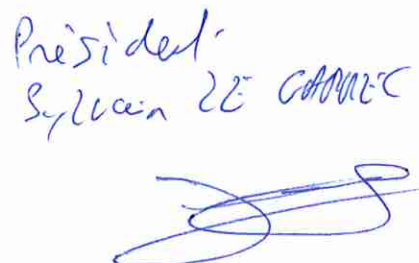 Président
Sylvain LE GARREC